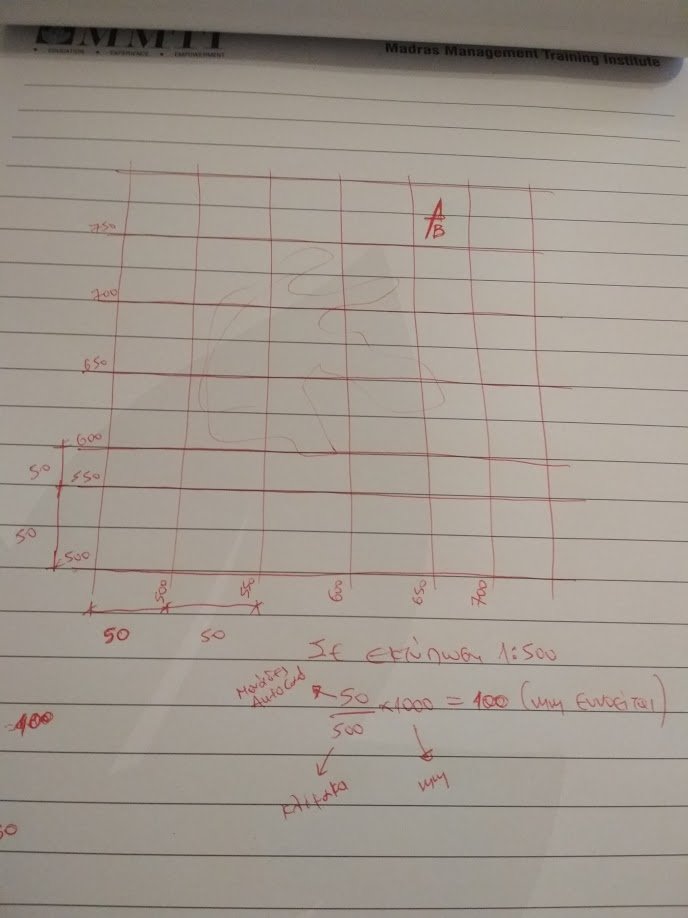 MMTI
Madras Management Training Institute
• EDUCATION • EXPERIENCE • EMPOWERMENT
A
B
750
700
650
600
50
550
50
500
500
550
600
650
700
50
50
Σε εκτύπωση 1:500
Μονάδες
AutoCad
50/500 × 1000 = 100 (mm εννοείται)
κλίμακα
mm
100
50